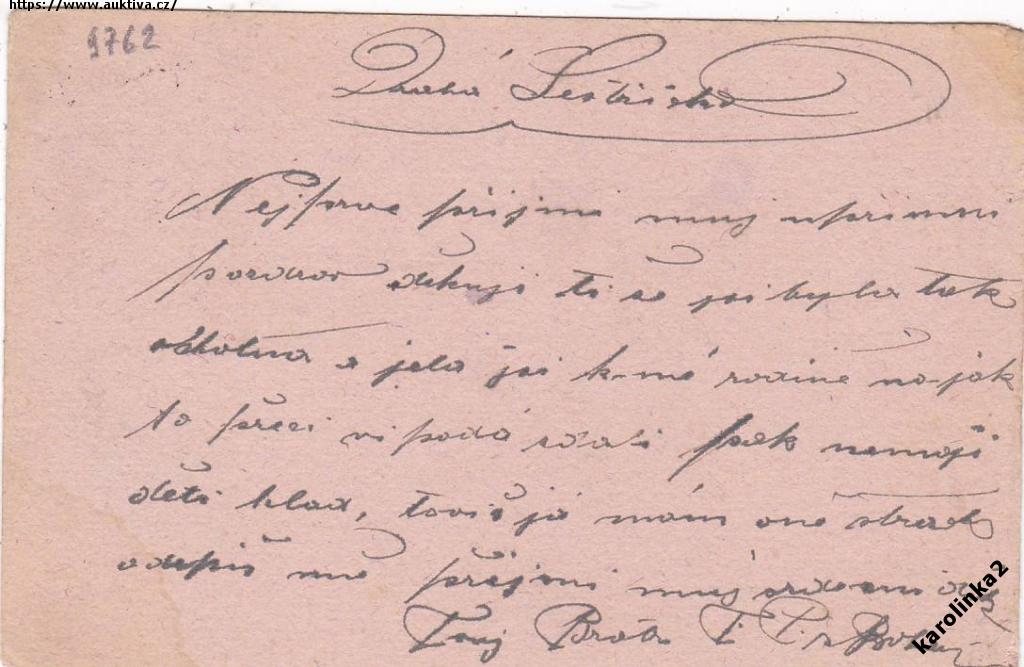 https://www.auktiva.cz/
9762
Drahá Sestřičko
Nejprve přijmi muj upřimni
pozdrav děkuji ti že jsi byla tak
ochotna a jela jsi k-mé rodině no-jak
to přeci vipadá zdali pak nemaji
děti hlad, toviš já mám oně strach
odepiš mě přijmi muj srdeční dik
Tvuj Bratr
karolinka2